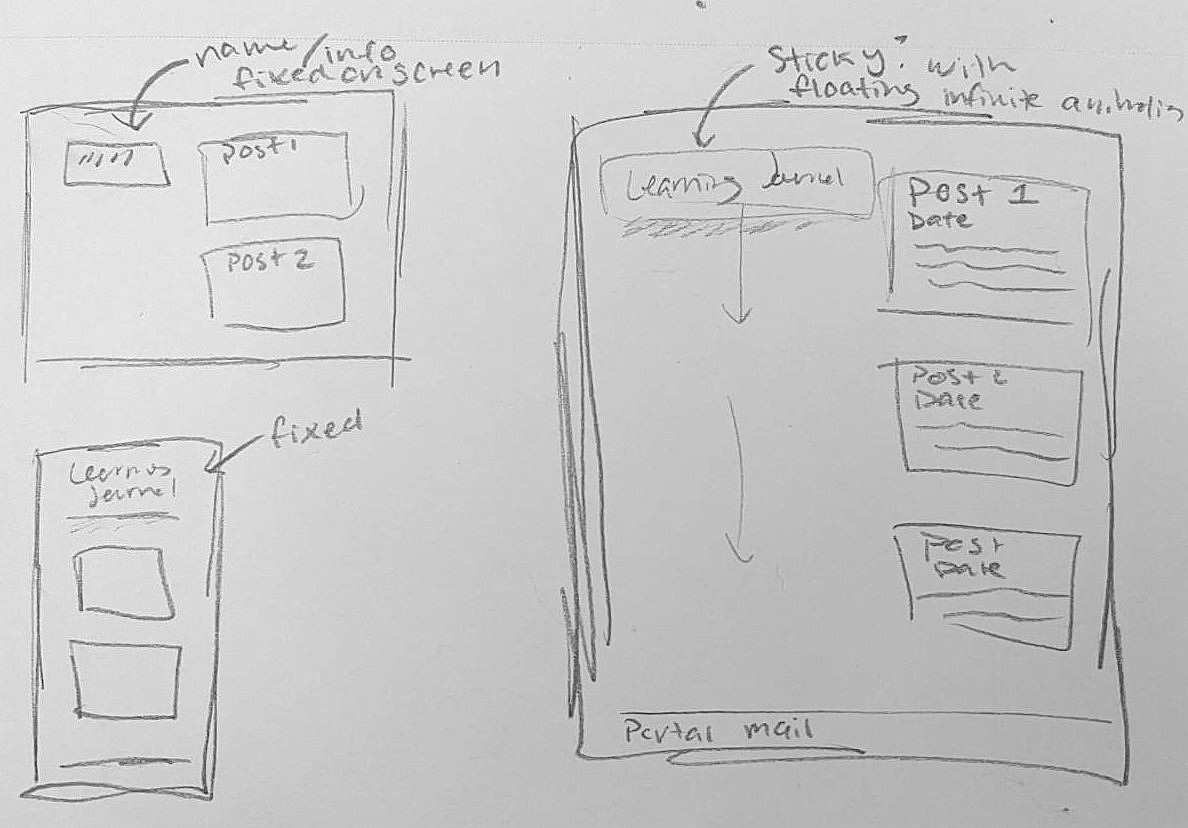 name/info
fixed on screen
Post 1
Post 2
fixed
Learning
Jornel
Sticky? with
floating infinite
Learning Jornel
Post 1
Date
Post 2
Date
Post
Date
Portal mail